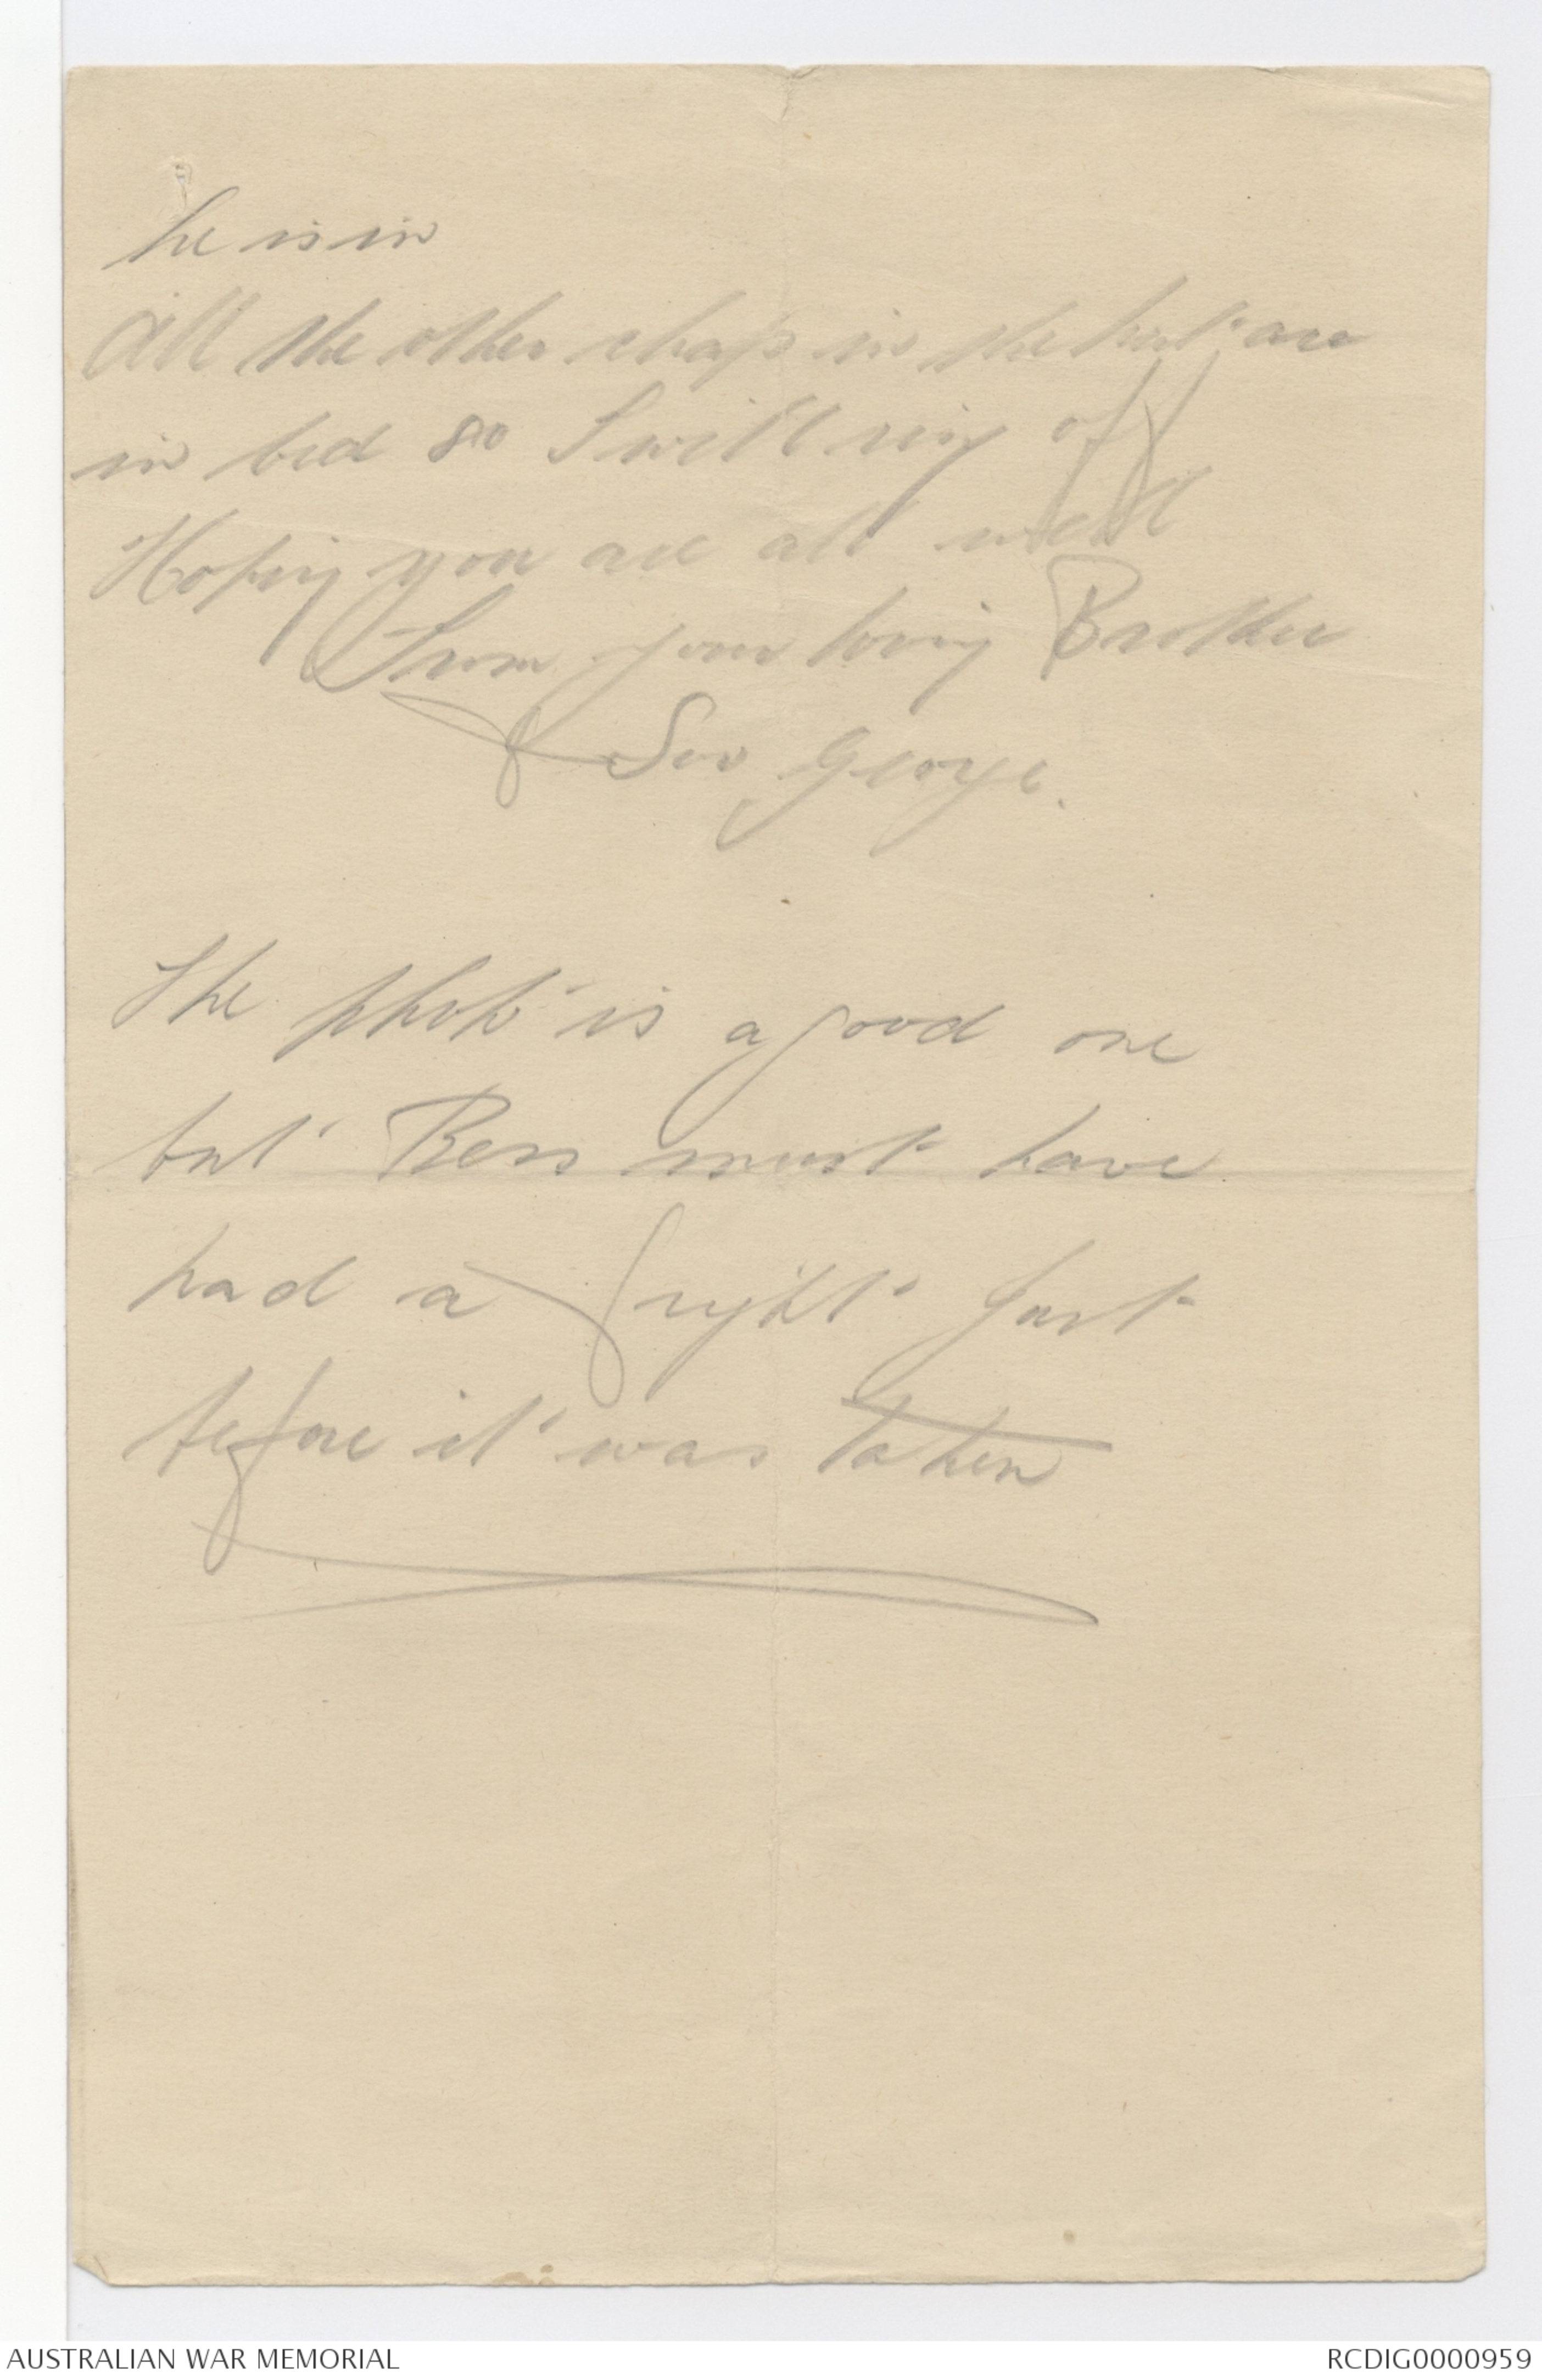 he is in
All the other chaps in the hut are
in bed so I will ring off
Hoping you are all well
From your loving Brother
George.
The photo is a good one
but Bess must have
had a fright just
before it was taken
AUSTRALIAN WAR MEMORIAL
RCDIG0000959